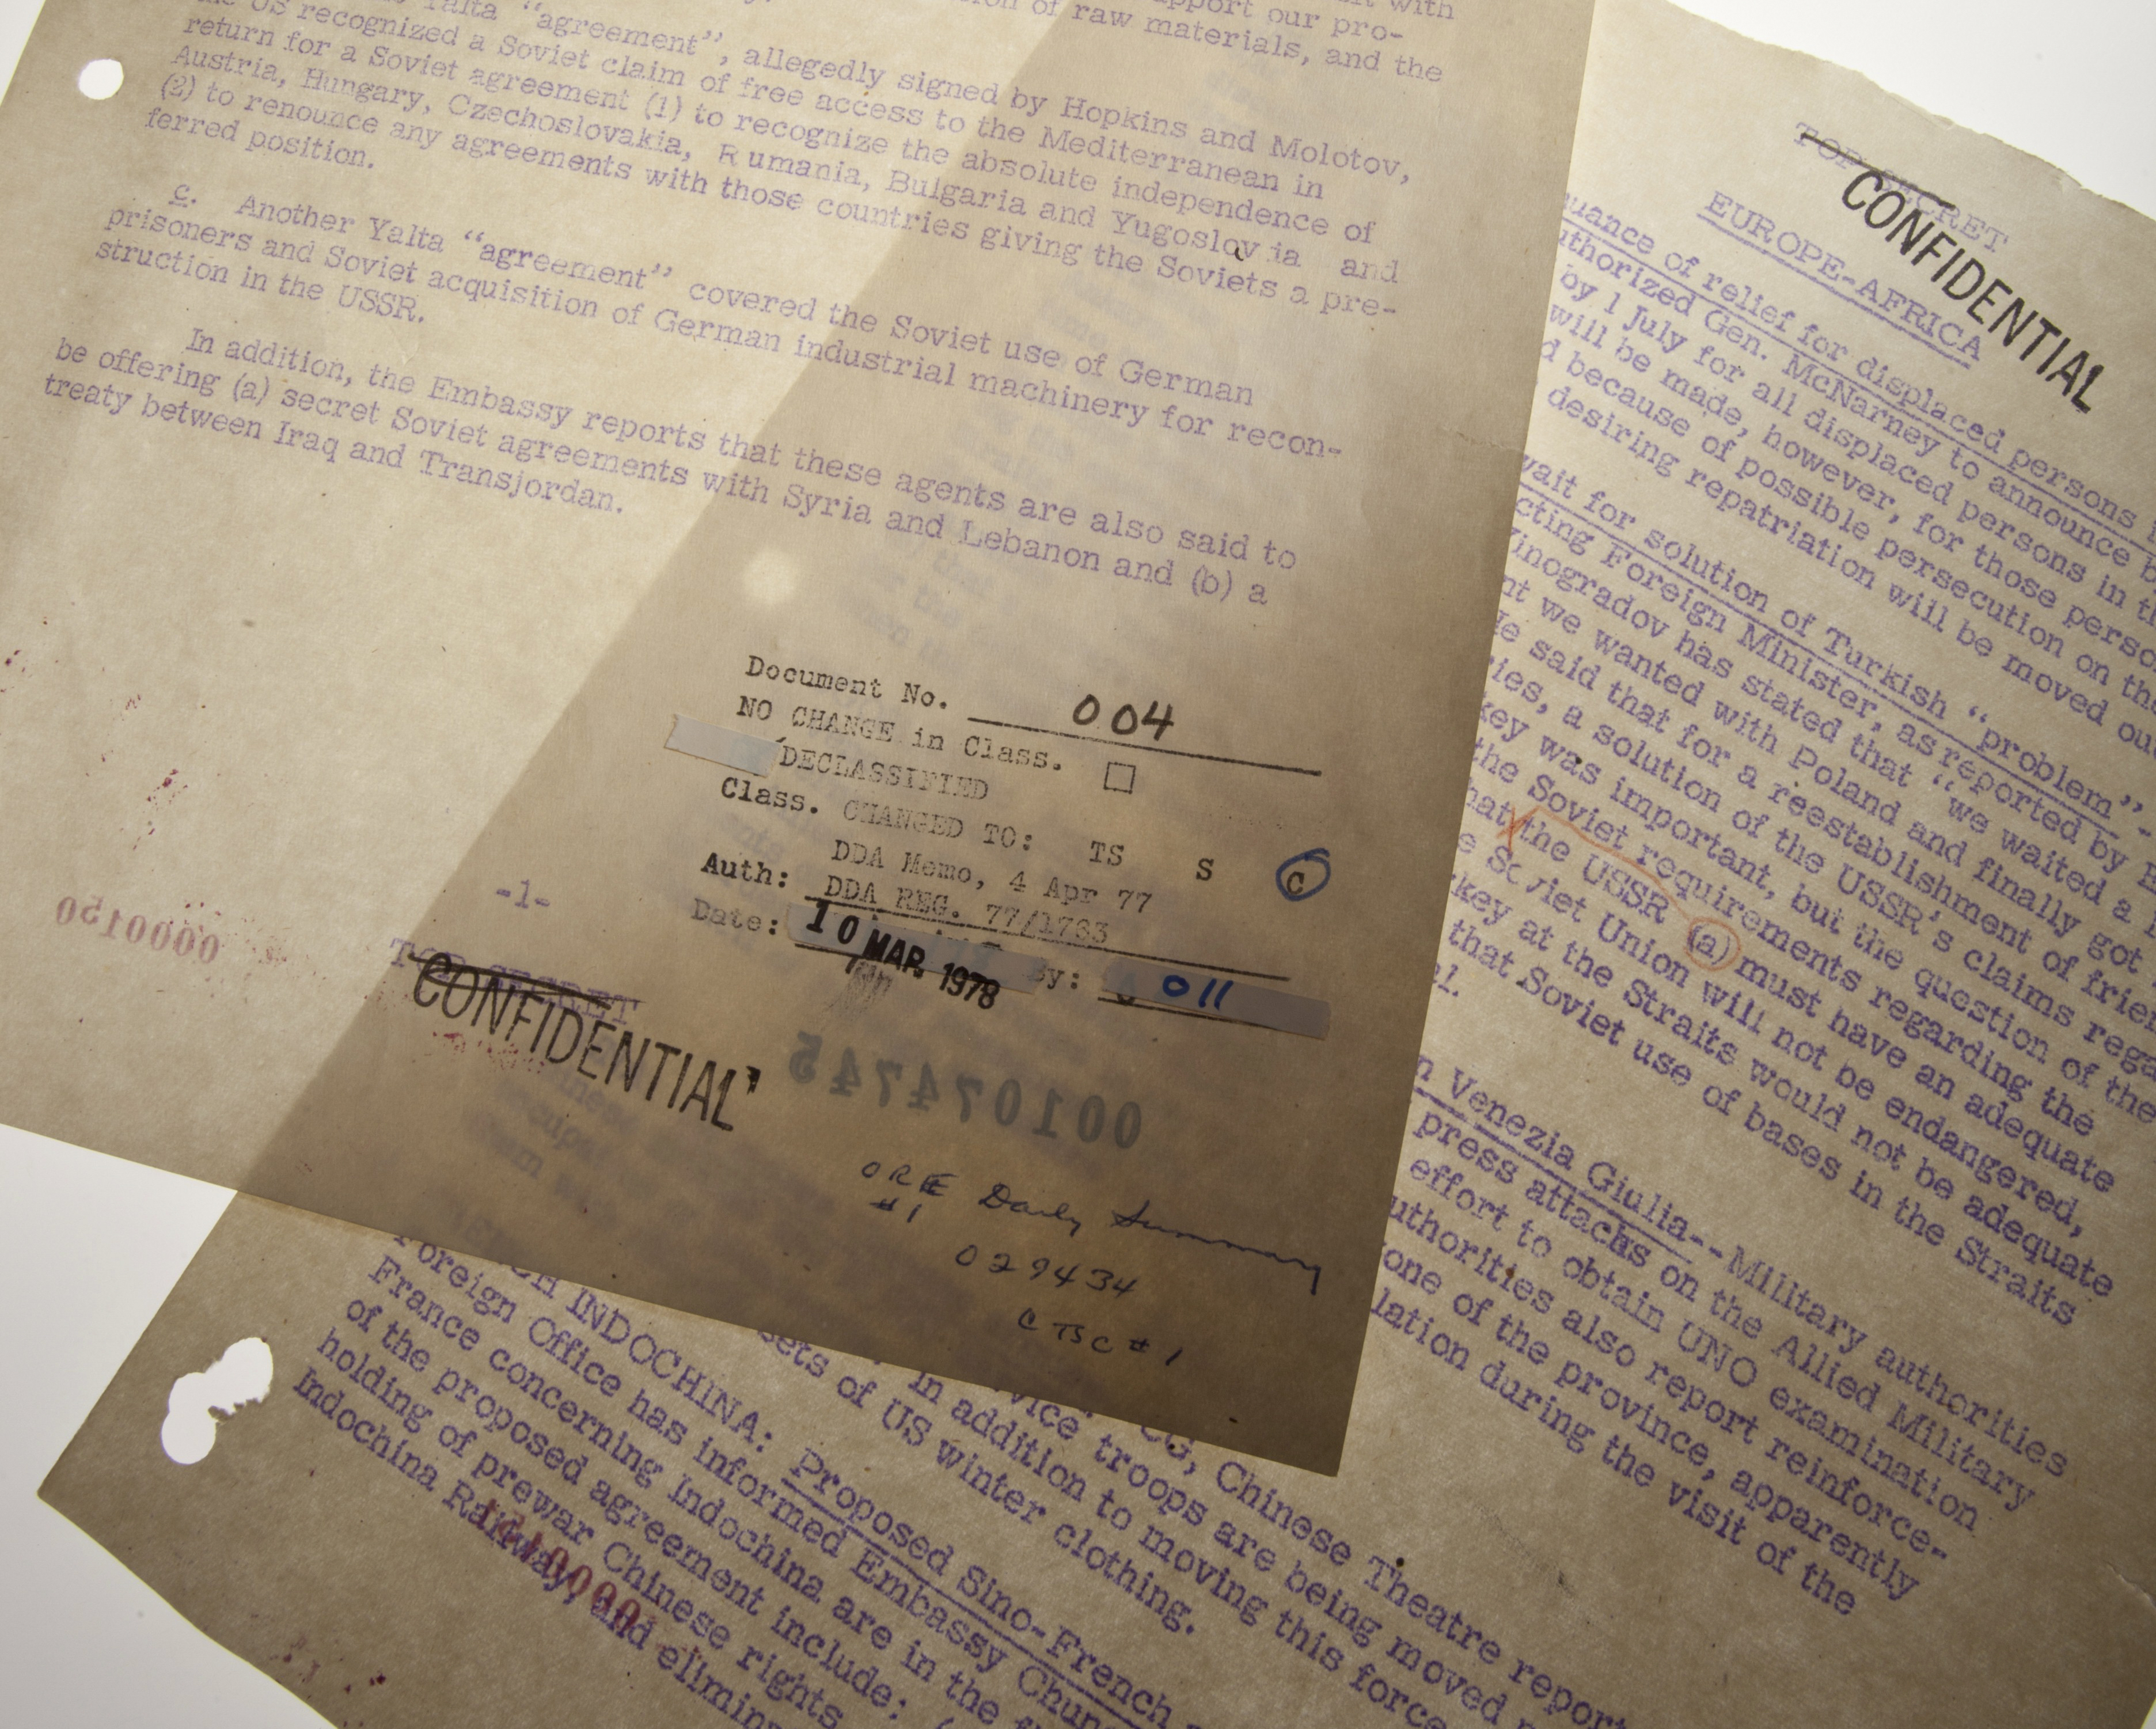 Yalta "agreement", allegedly signed by Hopkins and Molotov,
the US recognized a Soviet claim of free access to the Mediterranean in
return for a Soviet agreement (1) to recognize the absolute independence of
Austria, Hungary, Czechoslovakia, Rumania, Bulgaria and Yugoslovia and
(2) to renounce any agreements with those countries giving the Soviets a pre-
ferred position.
c. Another Yalta "agreement" covered the Soviet use of German
prisoners and Soviet acquisition of German industrial machinery for recon-
struction in the USSR.
In addition, the Embassy reports that these agents are also said to
be offering (a) secret Soviet agreements with Syria and Lebanon and (b) a
treaty between Iraq and Transjordan.
support our pro-
of raw materials, and the
Document No. 004
NO CHANGE in Class. □
DECLASSIFIED
Class. CHANGED TO: TS S C
DDA Memo, 4 Apr 77
Auth: DDA REG. 77/1733
Date: 10 MAR. 1978 By: 011
-1-
0000150
TOP SECRET
CONFIDENTIAL
001074745
ORE Daily Summary
#1
029434
CTSC #1
TOP SECRET
CONFIDENTIAL
EUROPE-AFRICA
of relief for displaced persons
Gen. McNarney to announce
by 1 July for all displaced persons in
will be made, however, for those
because of possible persecution on
desiring repatriation will be moved
for solution of Turkish "problem"
Foreign Minister, as reported by
has stated that "we waited a
we wanted with Poland and finally got
said that for a reestablishment of
a solution of the USSR's claims
was important, but the question of the
the Soviet requirements regarding the
the USSR (a) must have an adequate
Soviet Union will not be endangered,
at the Straits would not be adequate
that Soviet use of bases in the Straits
Venezia Giulia--Military authorities
press attachs on the Allied Military
effort to obtain UNO examination
authorities also report reinforce-
one of the province, apparently
during the visit of the
Chinese Theatre
troops are being moved
in addition to moving this force
of US winter clothing.
INDOCHINA: Proposed Sino-French
Foreign Office has informed Embassy
France concerning Indochina are in the
of the proposed agreement include:
holding of prewar Chinese rights
Indochina Railway and